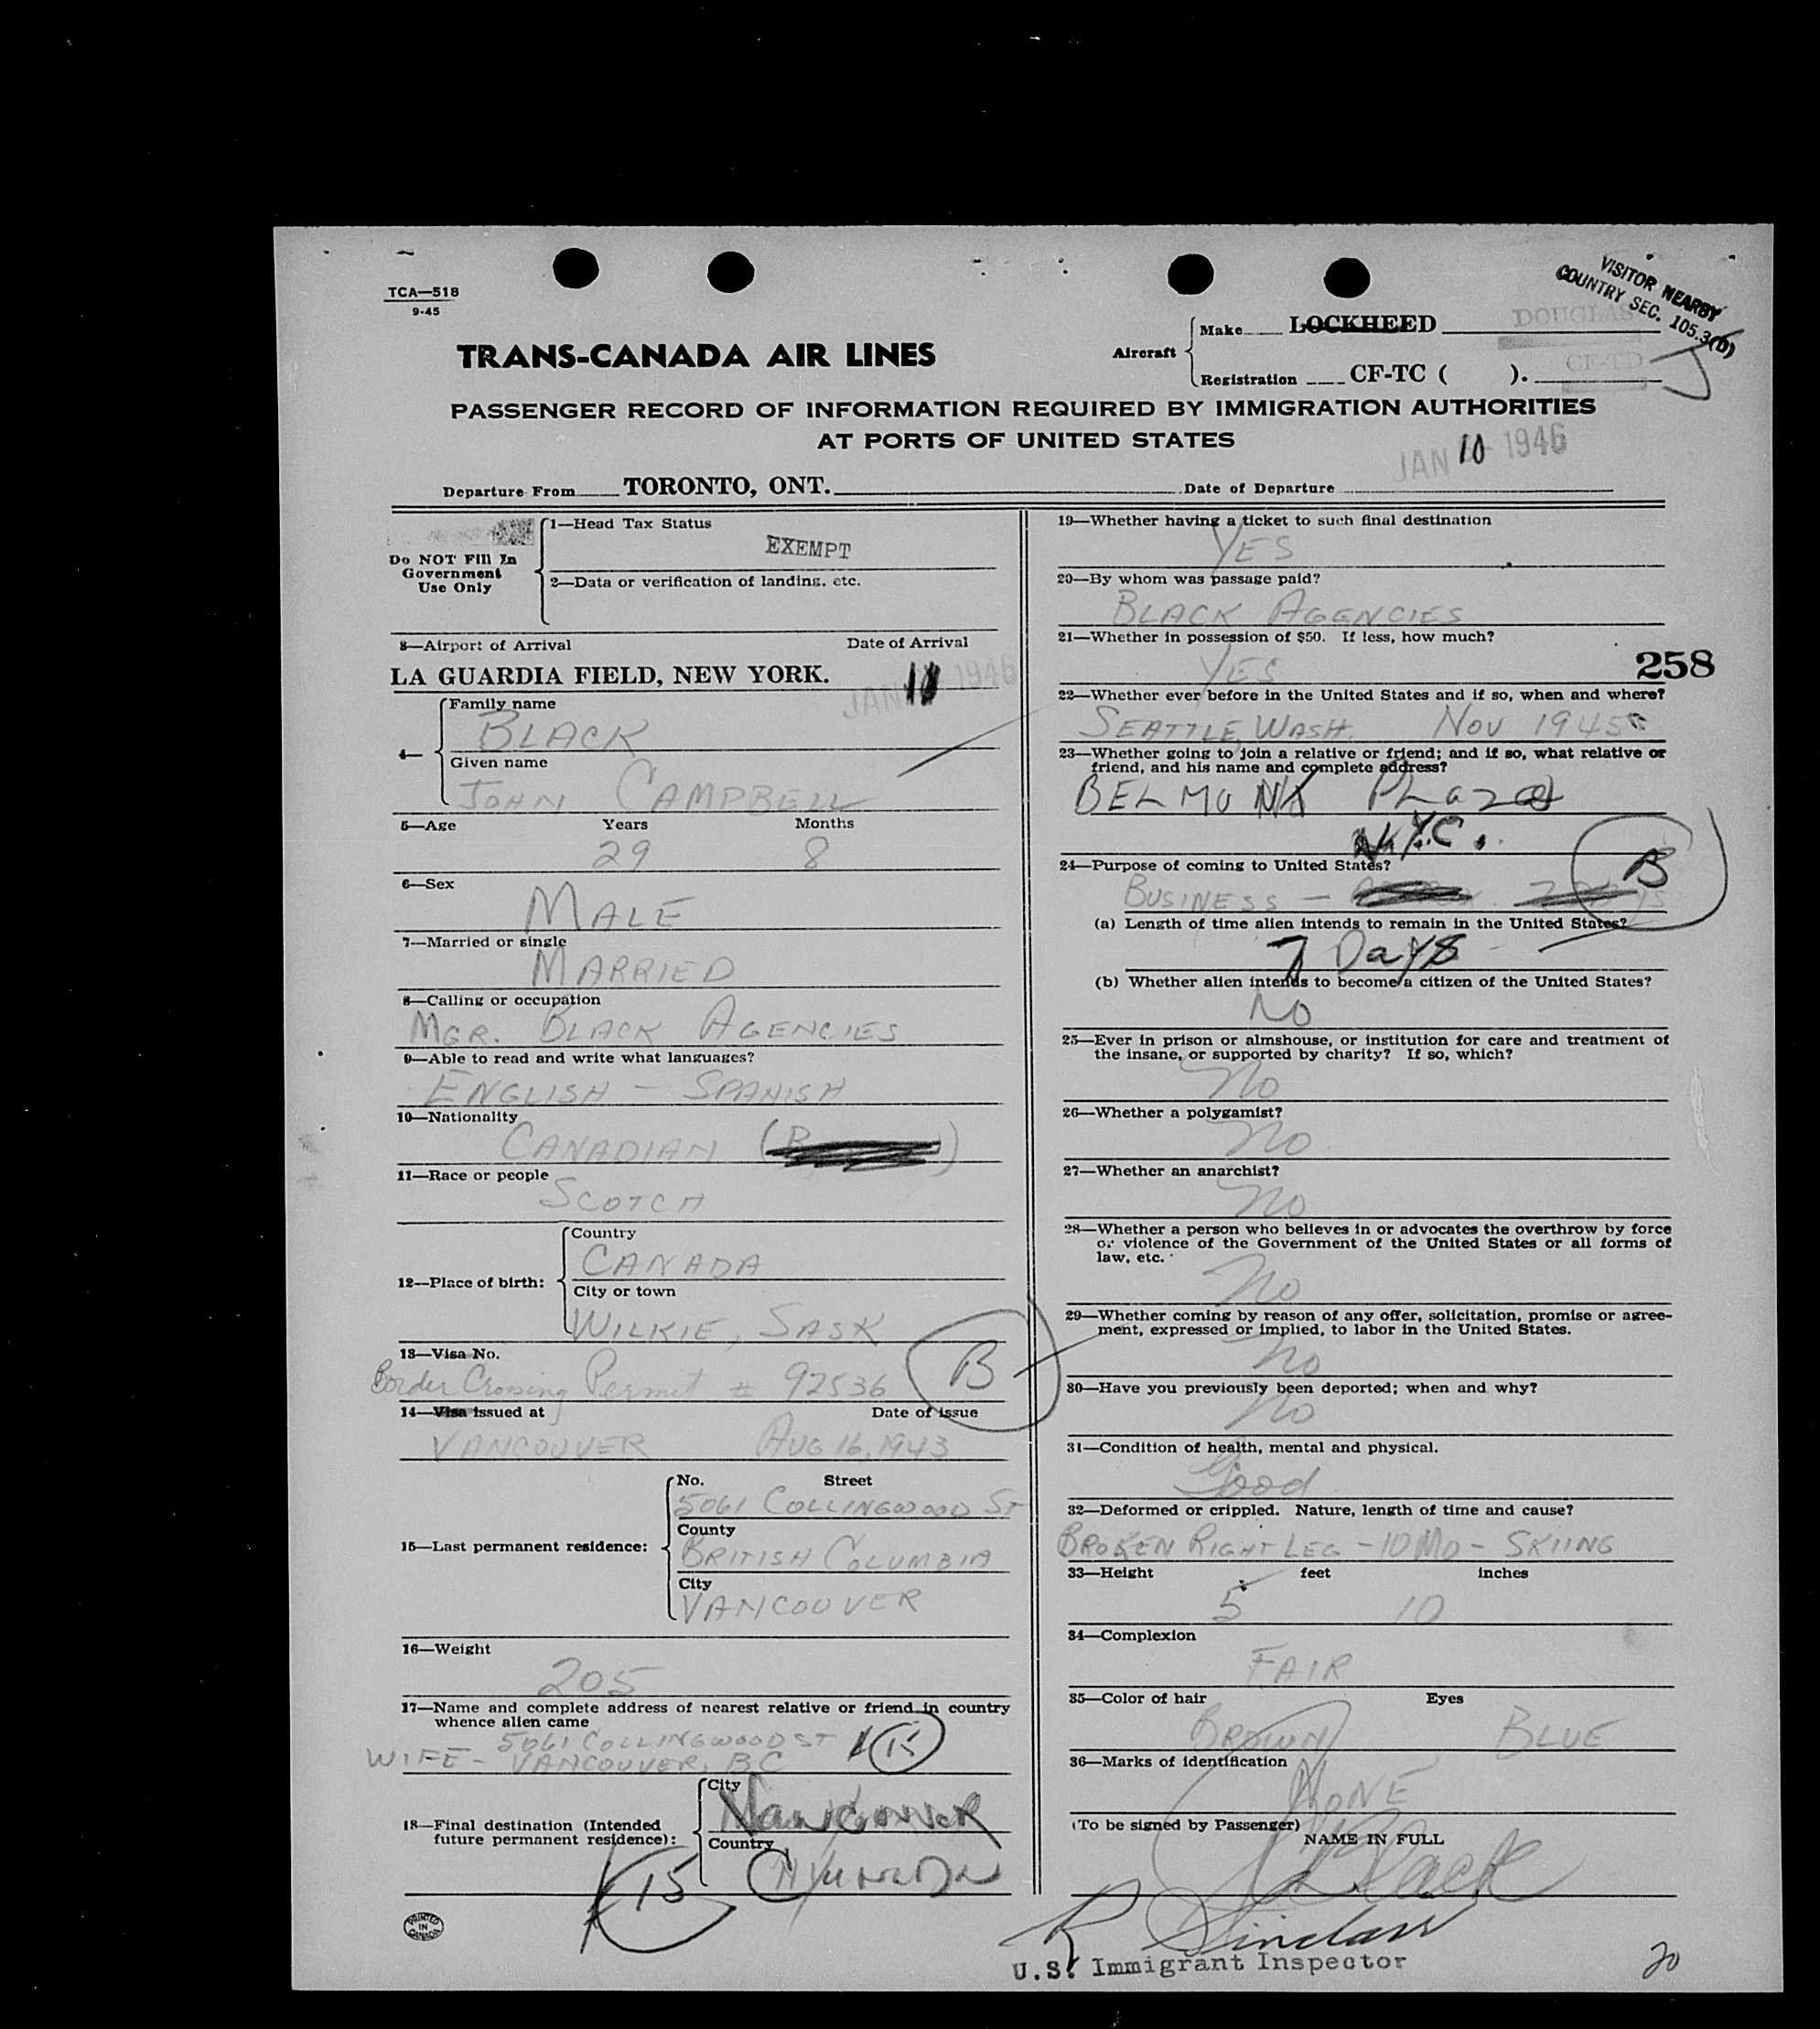 TCA—518
9-45
VISITOR NEARBY
COUNTRY SEC. 105.3(b)
TRANS-CANADA AIR LINES
Aircraft
Make LOCKHEED DOUGLAS
Registration CF-TC ( ). CF-TD
PASSENGER RECORD OF INFORMATION REQUIRED BY IMMIGRATION AUTHORITIES
AT PORTS OF UNITED STATES
JAN 10 1946
Departure From TORONTO, ONT. Date of Departure
Do NOT Fill In
Government
Use Only
1—Head Tax Status
EXEMPT
2—Data or verification of landing, etc.
3—Airport of Arrival Date of Arrival
LA GUARDIA FIELD, NEW YORK. JAN 10 1946
4—
Family name
BLACK
Given name
JOHN CAMPBELL
5—Age Years Months
29 8
6—Sex
MALE
7—Married or single
MARRIED
8—Calling or occupation
MGR. BLACK AGENCIES
9—Able to read and write what languages?
ENGLISH — SPANISH
10—Nationality
CANADIAN ( )
11—Race or people
SCOTCH
12—Place of birth:
Country
CANADA
City or town
WILKIE, SASK
13—Visa No.
Border Crossing Permit # 92536 B
14—Visa issued at Date of issue
VANCOUVER AUG 16, 1943
15—Last permanent residence:
No. Street
5061 COLLINGWOOD ST
County
BRITISH COLUMBIA
City
VANCOUVER
16—Weight
205
17—Name and complete address of nearest relative or friend in country
whence alien came
5061 COLLINGWOOD ST
WIFE - VANCOUVER, BC 15
18—Final destination (Intended
future permanent residence):
City
Vancouver
Country
15
PRINTED
IN
CANADA
19—Whether having a ticket to such final destination
YES
20—By whom was passage paid?
BLACK AGENCIES
21—Whether in possession of $50. If less, how much?
YES
258
22—Whether ever before in the United States and if so, when and where?
SEATTLE, WASH. NOV 1945
23—Whether going to join a relative or friend; and if so, what relative or
friend, and his name and complete address?
BELMONT Plaza
N.Y.C.
24—Purpose of coming to United States?
BUSINESS — B
(a) Length of time alien intends to remain in the United States?
7 Days
(b) Whether alien intends to become a citizen of the United States?
No
25—Ever in prison or almshouse, or institution for care and treatment of
the insane, or supported by charity? If so, which?
No
26—Whether a polygamist?
No
27—Whether an anarchist?
No
28—Whether a person who believes in or advocates the overthrow by force
or violence of the Government of the United States or all forms of
law, etc.
No
29—Whether coming by reason of any offer, solicitation, promise or agree-
ment, expressed or implied, to labor in the United States.
No
30—Have you previously been deported; when and why?
No
31—Condition of health, mental and physical.
Good
32—Deformed or crippled. Nature, length of time and cause?
BROKEN RIGHT LEG - 10 MO - SKIING
33—Height feet inches
5 10
34—Complexion
FAIR
35—Color of hair Eyes
BROWN BLUE
36—Marks of identification
NONE
(To be signed by Passenger)
NAME IN FULL
Black
R Sinclair
U.S. Immigrant Inspector
20